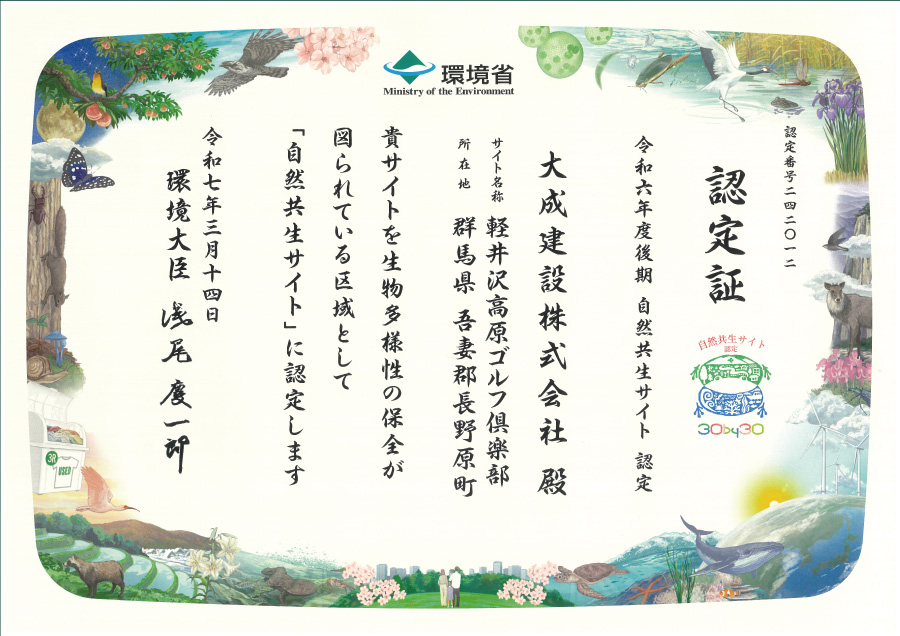 環境省
Ministry of the Environment
認定番号二四二〇一二
認定証
令和六年度後期 自然共生サイト 認定
自然共生サイト
認定
30by30
大成建設株式会社 殿
サイト名称 軽井沢高原ゴルフ倶楽部
所在地 群馬県 吾妻郡長野原町
貴サイトを生物多様性の保全が
図られている区域として
「自然共生サイト」に認定します
令和七年三月十四日
環境大臣 浅尾慶一郎
3R
USED